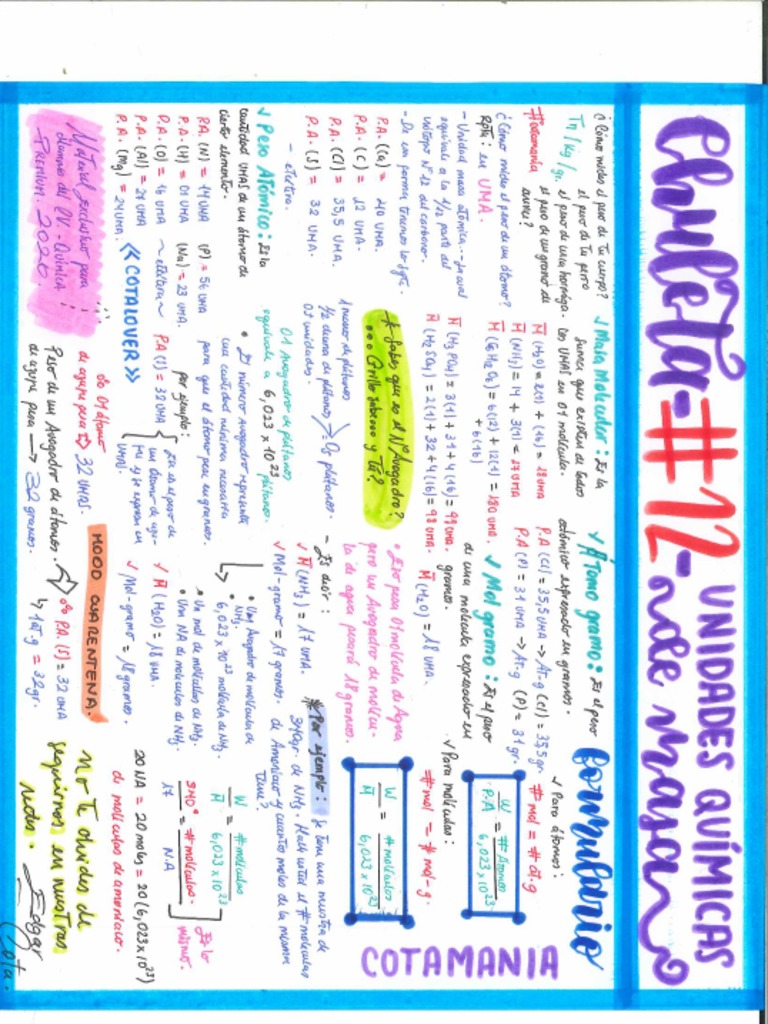 Chuleta-#12-UNIDADES QUÍMICAS
de masa
¿Cómo mides el peso de tu cuerpo?
el peso de tu perro
Tn/kg/gr. el peso de una hormiga.
#cotamania el peso de un grano de
arroz?
¿Cómo mides el peso de un átomo?
Rpta: en UMA.
- Unidad masa atómica... la cual
equivale a la 1/12 parte del
isótopo Nº 12 del carbono.
- De esa forma tenemos lo sgte.
P.A.(Ca) = 40 UMA.
P.A.(C) = 12 UMA.
P.A.(Cl) = 35,5 UMA.
P.A.(S) = 32 UMA.
- etcétera.
✓ Peso Atómico: Es la
cantidad UMAS de un átomo de
cierto elemento.
P.A.(N) = 14 UMA (P) = 56 UMA
P.A.(H) = 01 UMA (Na) = 23 UMA.
P.A.(O) = 16 UMA ~ etcétera ~
P.A.(Al) = 27 UMA
P.A.(Mg) = 24 UMA.
<< COTALOVER >>
Material exclusivo para
alumnos del PV. Química
PREMIUM. 2020.
✓ Masa Molecular: Es la
suma que existen de todos
los UMAS en 01 molécula.
M̄(H₂O) = 2(1) + (16) = 18 UMA
M̄(NH₃) = 14 + 3(1) = 17 UMA
M̄(C₆H₁₂O₆) = 6(12) + 12(1) = 180 UMA.
+ 6(16)
M̄(H₃PO₄) = 3(1) + 31 + 4(16) = 98 UMA.
M̄(H₂SO₄) = 2(1) + 32 + 4(16) = 98 UMA.
# Sabes que es el Nº Avogadro?
••• Grillo saberooo y Tú?
1 mano de plátanos
1/2 decena de plátanos > 05 plátanos -
05 unidades.
01 Avogadro de plátanos
equivale a 6,023 x 10²³ plátanos.
• El número Avogadro representa
una cantidad mínima necesaria
para que el átomo pese en gramos.
por ejemplo:
P.A.(S) = 32 UMA { Ese es el peso de
un átomo de azu-
fre y se expresa en
UMAS.
• 01 átomo
de azufre pesa ⇨ 32 UMAS.
Peso de un Avogadro de átomos.
de azufre pesa → 32 gramos.
✓ Átomo gramo: Es el peso
atómico expresado en gramos.
P.A(Cl) = 35,5 UMA -> At-g (Cl) = 35,5 gr.
P.A(P) = 31 UMA -> At-g (P) = 31 gr.
✓ Mol gramo: Es el peso
de una molécula expresado en
gramos.
M̄(H₂O) = 18 UMA.
• Eso pesa 01 molécula de Agua
pero un Avogadro de molécu-
la de agua pesará 18 gramos.
- Es decir:
✓ M̄(NH₃) = 17 UMA.
✓ Mol-gramo = 17 gramos.
↳ • Un Avogadro de molécula de
NH₃.
6,023 x 10²³ molécula de NH₃.
• Un mol de moléculas de NH₃.
• Un NA de moléculas de NH₃.
✓ M̄(H₂O) = 18 UMA.
✓ Mol-gramo = 18 gramos.
MOOD CUARENTENA.
P.A.(S) = 32 UMA
↳ 1 at.g = 32 gr.
formulario
✓ Para átomos:
#mol = # at-g
W/P.A = # Átomos/6,023 x 10²³
✓ Para moléculas:
#mol = # mol-g.
W/M̄ = # moléculas/6,023 x 10²³
COTAMANIA
#Por ejemplo: Se tiene una muestra de
340 gr. de NH₃. Halle usted el # moléculas
de Amoniaco y cuantos moles de la misma
tiene?
W/M̄ = # moléculas/6,023 x 10²³
340/17 = # moléculas./NA ] Es lo
mismo.
20 NA = 20 moles = 20 (6,023 x 10²³)
de moléculas de amoniaco.
No te olvides de
seguirnos en nuestras
redes.
Edgar
Cota.